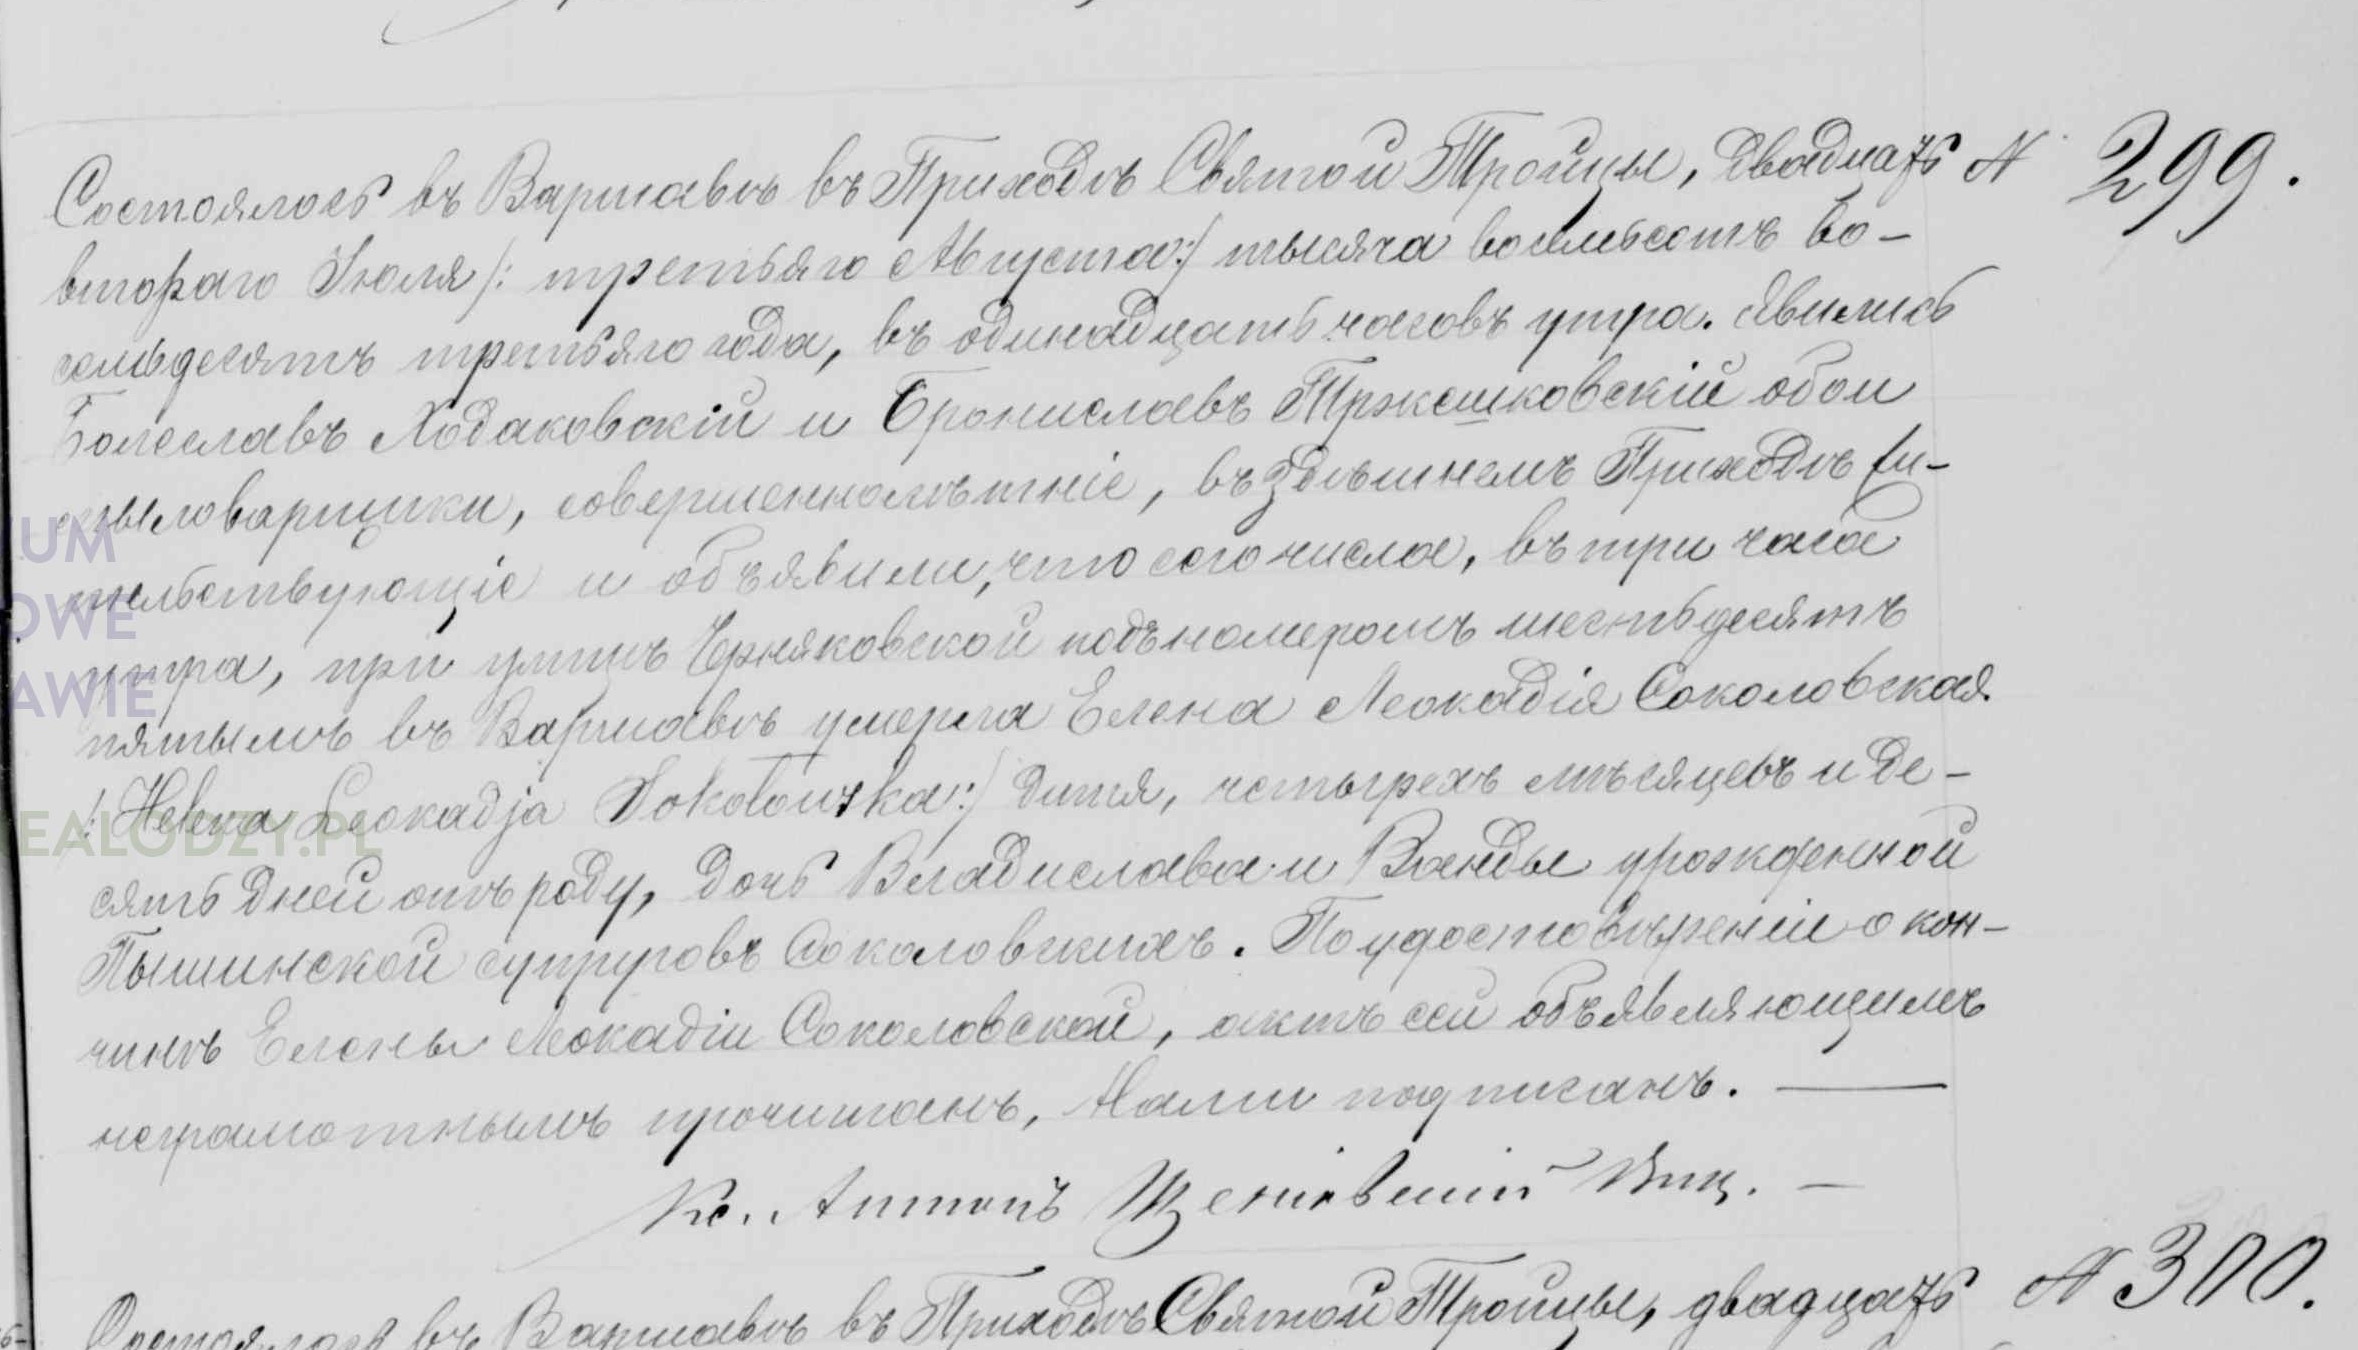 Состоялось въ Варшавѣ въ Приходѣ Святой Тройцы, двадцать N 299.
втораго Іюля /: третьяго Августа :/ тысяча восемьсотъ во-
семьдесятъ третьяго года, въ одинадцать часовъ утра. Явились
Болеславъ Ходаковскій и Брониславъ Тржешковскій обои
мыловарщики, совершеннолѣтніе, въ здѣшнемъ Приходѣ жи-
тельствующіе и объявили, что сего числа, въ три часа
утра, при улицѣ Черняковской подъ номеромъ шестьдесятъ
пятымъ въ Варшавѣ умерла Елена Леокадія Соколовская
/: Helena Leokadja Sokołowska :/ дитя, четырехъ мѣсяцевъ и де-
сять дней отъ роду, дочь Владислава и Ванды урожденной
Пышинской супруговъ Соколовскихъ. По удостовѣреніи о кон-
чинѣ Елены Леокадіи Соколовской, актъ сей объявляющимъ
неграмотнымъ прочитанъ, Нами подписанъ. —
Кс. Антонъ Вик. —
Состоялось въ Варшавѣ въ Приходѣ Святой Тройцы, двадцать N 300.
UM
OWE
AWIE
EALODZY.PL